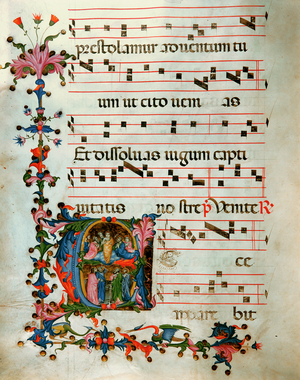 prestolamur adventum tu
um ut cito veni as
Et dissolvas iugum capti
vitatis no stre p Venite R
E cce
appare bit